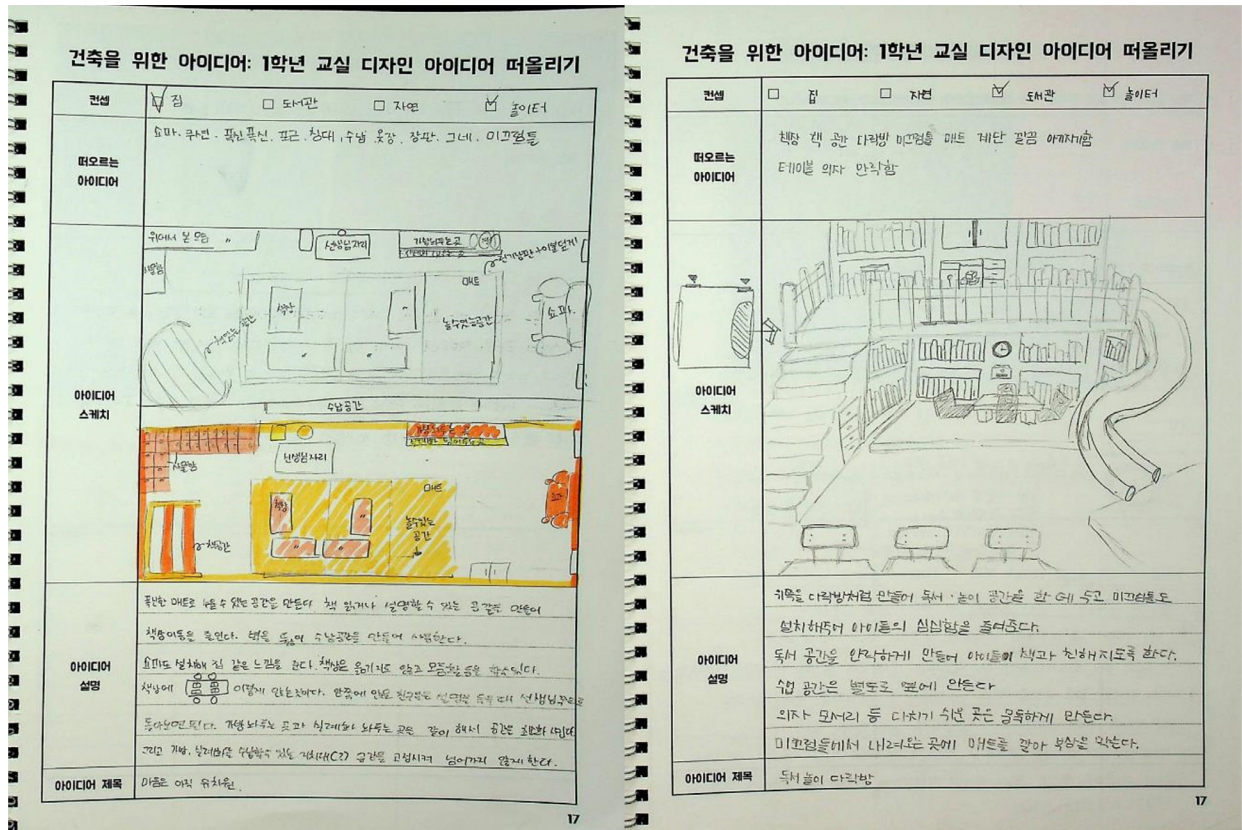 건축을 위한 아이디어: 1학년 교실 디자인 아이디어 떠올리기
컨셉
집
도서관
자연
놀이터
떠오르는
아이디어
소파. 쿠션. 푹신푹신. 포근. 침대, 수납, 옷장, 장판. 그네. 미끄럼틀
아이디어
스케치
위에서 본 모습
선생님자리
사물함
책상
매트
놀수있는공간
소파
수납공간
사물함
선생님자리
책공간
책상
매트
놀수있는
공간
소파
아이디어
설명
푹신한 매트로 누울 수 있는 공간을 만든다 책 읽거나 설명할 수 있는 공간을 만들어
책상이동을 줄인다. 벽을 뚫어 수납공간을 만들어 사용한다.
소파도 설치해 집 같은 느낌을 준다. 책상은 옮기지도 않고 모둠활동을 할수있다.
책상에 이렇게 앉는것이다. 안쪽에 앉은 친구들은 설명을 들을 때 선생님쪽으로
돌아보면 된다. 가방 놔두는 곳과 실내화 놔두는 곳은 같이 해서 공간은 최소화 시킨다
그리고 가방, 실내화를 수납할수 있는 거치대(?) 공간을 고정시켜 넘어가지 않게 한다.
아이디어 제목
마음은 아직 유치원.
17
건축을 위한 아이디어: 1학년 교실 디자인 아이디어 떠올리기
컨셉
집
자연
도서관
놀이터
떠오르는
아이디어
책장 책 공간 다락방 미끄럼틀 매트 계단 깔끔 아기자기함
테이블 의자 안락함
아이디어
스케치
아이디어
설명
위쪽을 다락방처럼 만들어 독서·놀이 공간을 한 데 두고 미끄럼틀도
설치해주어 아이들의 심심함을 줄여준다.
독서 공간을 안락하게 만들어 아이들이 책과 친해지도록 한다.
수업 공간은 별도로 옆에 만든다
의자 모서리 등 다치기 쉬운 곳은 뭉툭하게 만든다.
미끄럼틀에서 내려오는 곳에 매트를 깔아 부상을 막는다.
아이디어 제목
독서 놀이 다락방
17